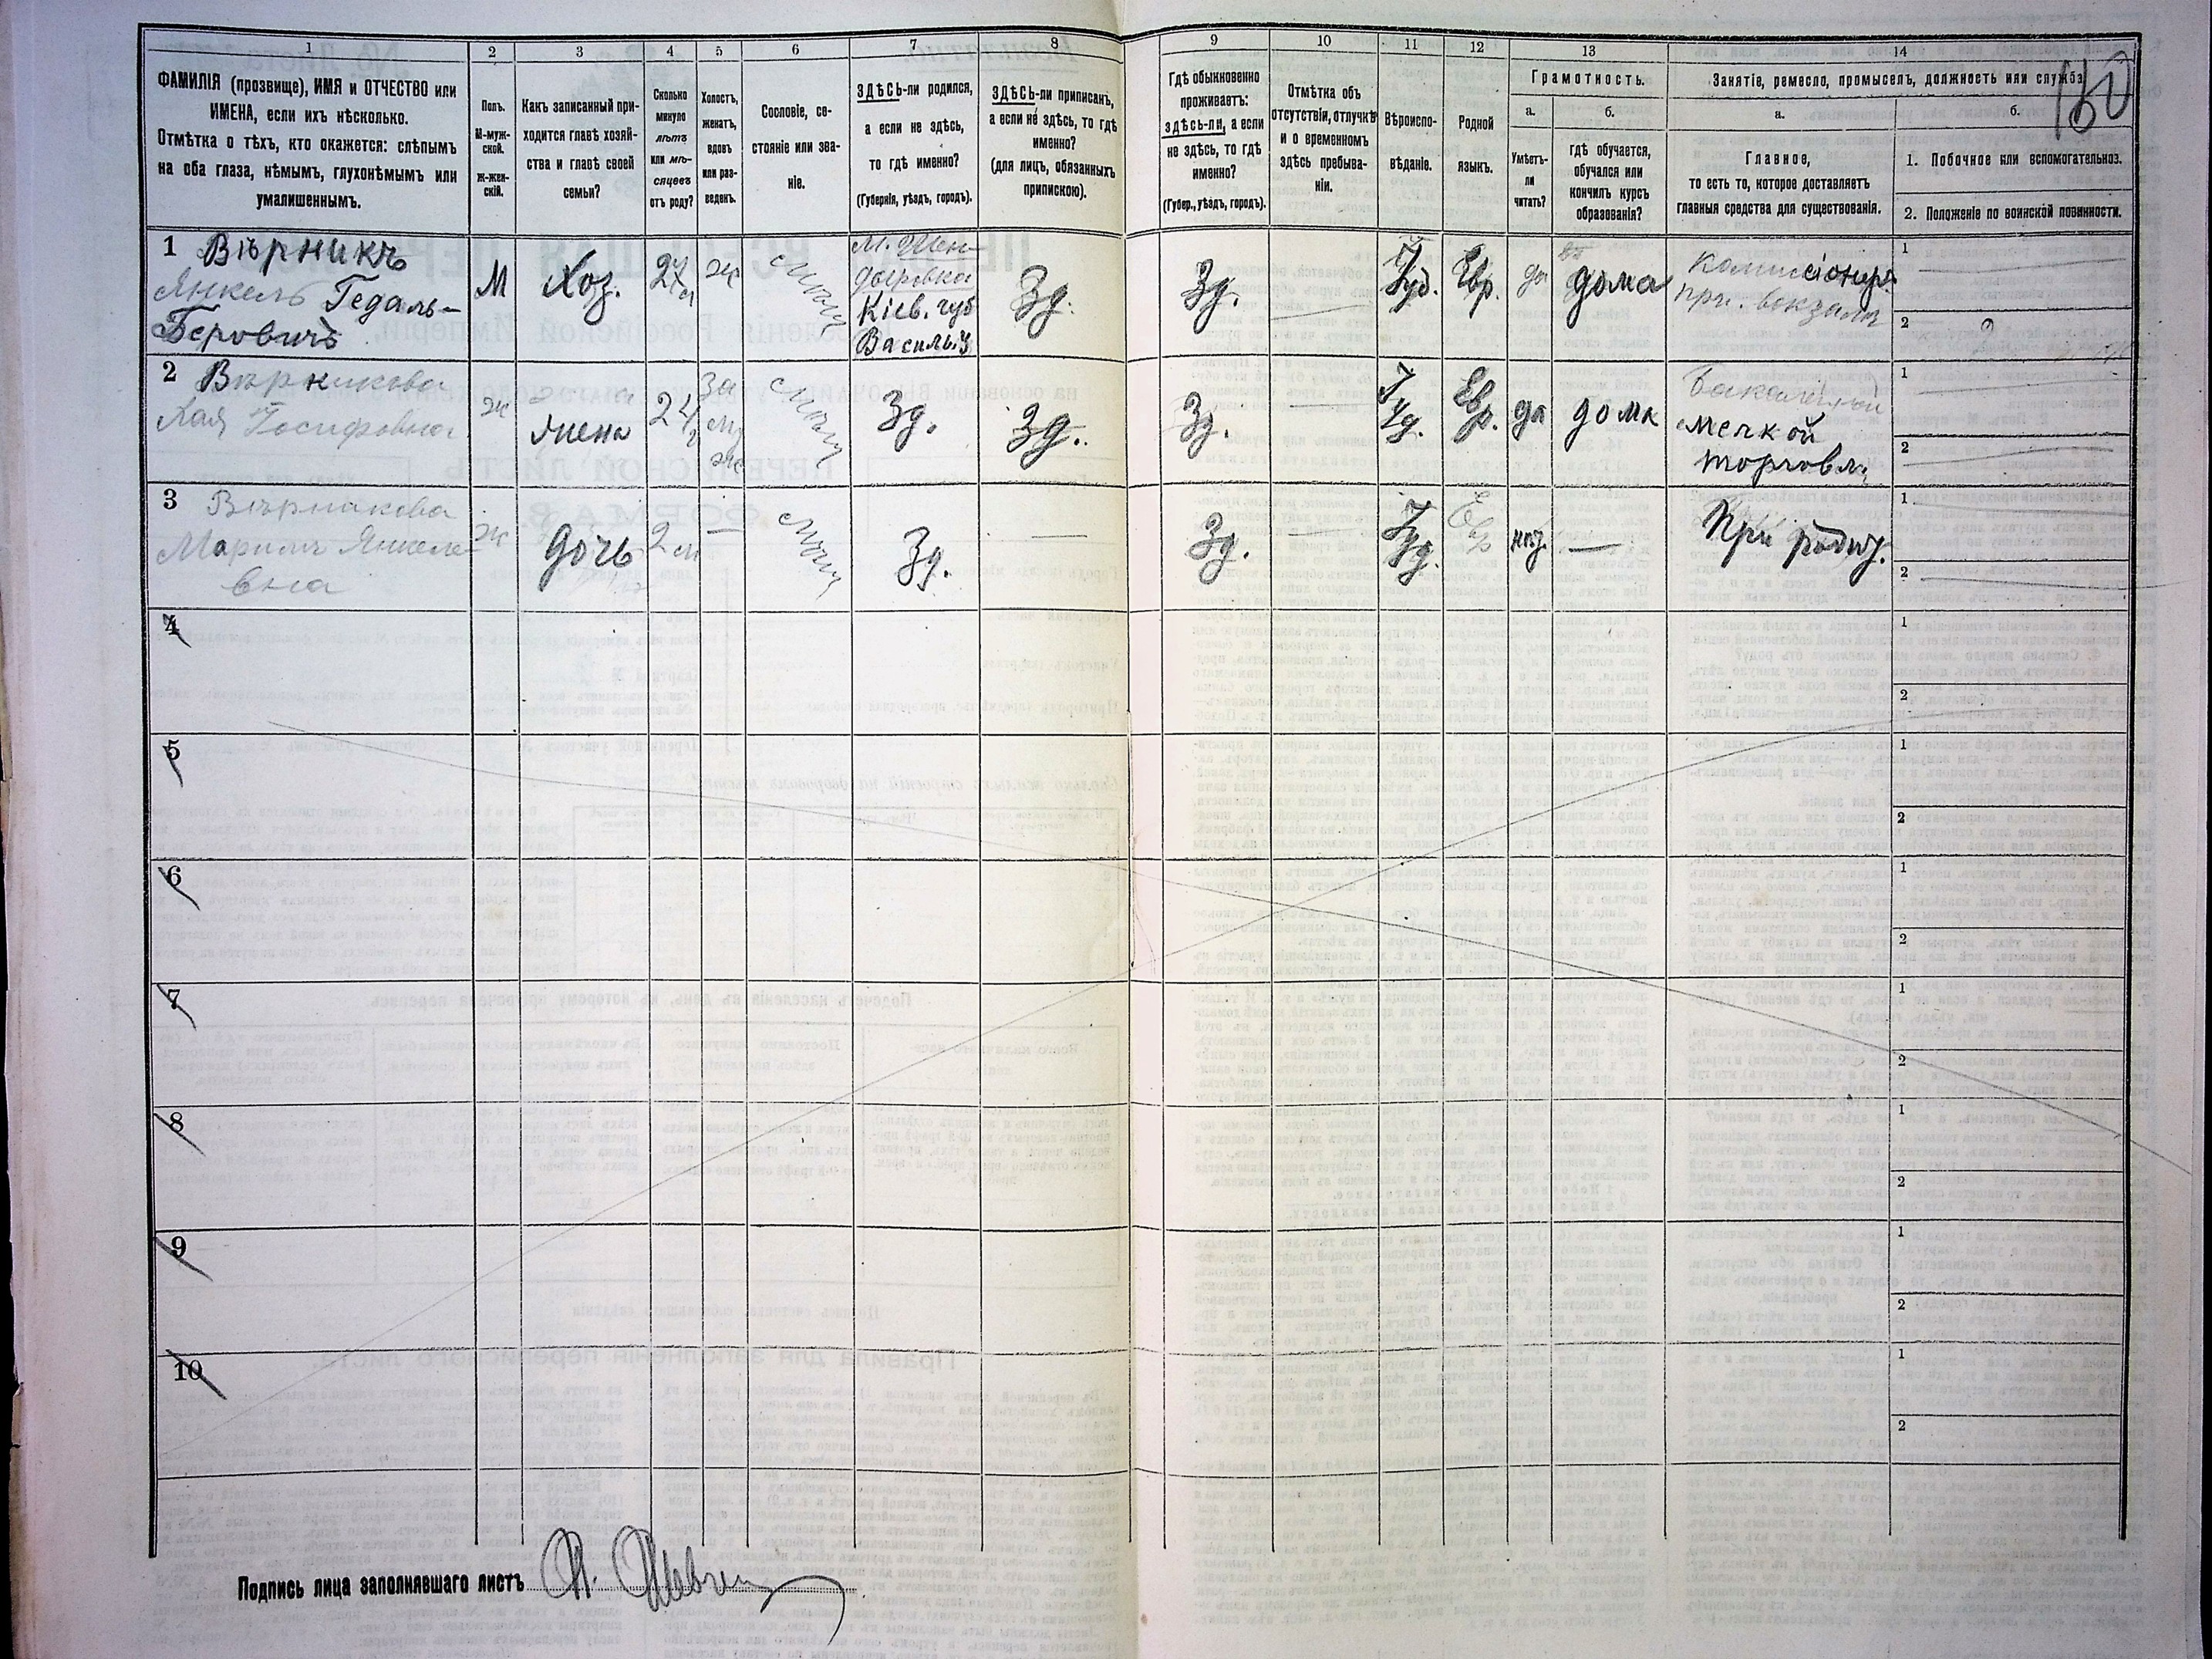 1
2
3
4
5
6
7
8
9
10
11
12
13
14
ФАМИЛІЯ (прозвище), ИМЯ и ОТЧЕСТВО или
ИМЕНА, если ихъ нѣсколько.
Отмѣтка о тѣхъ, кто окажется: слѣпымъ
на оба глаза, нѣмымъ, глухонѣмымъ или
умалишеннымъ.
Полъ.
М-муж-
ской.
Ж-жен-
скій.
Какъ записанный при-
ходится главѣ хозяй-
ства и главѣ своей
семьи?
Сколько
минуло
лѣтъ
или мѣ-
сяцевъ
отъ роду?
Холостъ,
женатъ,
вдовъ
или раз-
веденъ.
Сословіе, со-
стояніе или зва-
ніе.
ЗДѢСЬ-ли родился,
а если не здѣсь,
то гдѣ именно?
(Губернія, уѣздъ, городъ).
ЗДѢСЬ-ли приписанъ,
а если не здѣсь, то гдѣ
именно?
(для лицъ, обязанныхъ
припискою).
Гдѣ обыкновенно
проживаетъ:
здѣсь-ли, а если
не здѣсь, то гдѣ
именно?
(Губер., уѣздъ, городъ).
Отмѣтка объ
отсутствіи, отлучкѣ
и о временномъ
здѣсь пребыва-
ніи.
Вѣроиспо-
вѣданіе.
Родной
языкъ.
Грамотность.
а.
б.
Умѣетъ-
ли
читать?
гдѣ обучается,
обучался или
кончилъ курсъ
образованія?
Занятіе, ремесло, промыселъ, должность или служба.
130
а.
б.
Главное,
то есть то, которое доставляетъ
главныя средства для существованія.
1. Побочное или вспомогательноз.
2. Положеніе по воинской повинности.
1 Вѣрникъ
Янкель Гедаль-
Беровичъ
М
Хоз.
24
ж
М. Шен-
дыровка
Кіев. губ
Васильк
Зд.
Зд.
Іуд.
Евр.
да
дома
Комисіонеръ
при вокзалѣ
1
2
2 Вѣрникова
Хая Іосифовна
ж
жена
24
За
му
ж
Зд.
Зд.
Зд.
Іуд.
Евр.
да
дома
Бакалейной
мелкой
торговл.
1
2
3 Вѣрникова
Маримъ Янкеле-
вна
ж
дочь
2 м
—
Зд.
—
Зд.
—
Іуд.
Евр
нѣт.
—
При родит.
1
2
4
1
2
5
1
2
6
1
2
7
1
2
8
1
2
9
1
2
10
1
2
Подпись лица заполнявшаго листъ